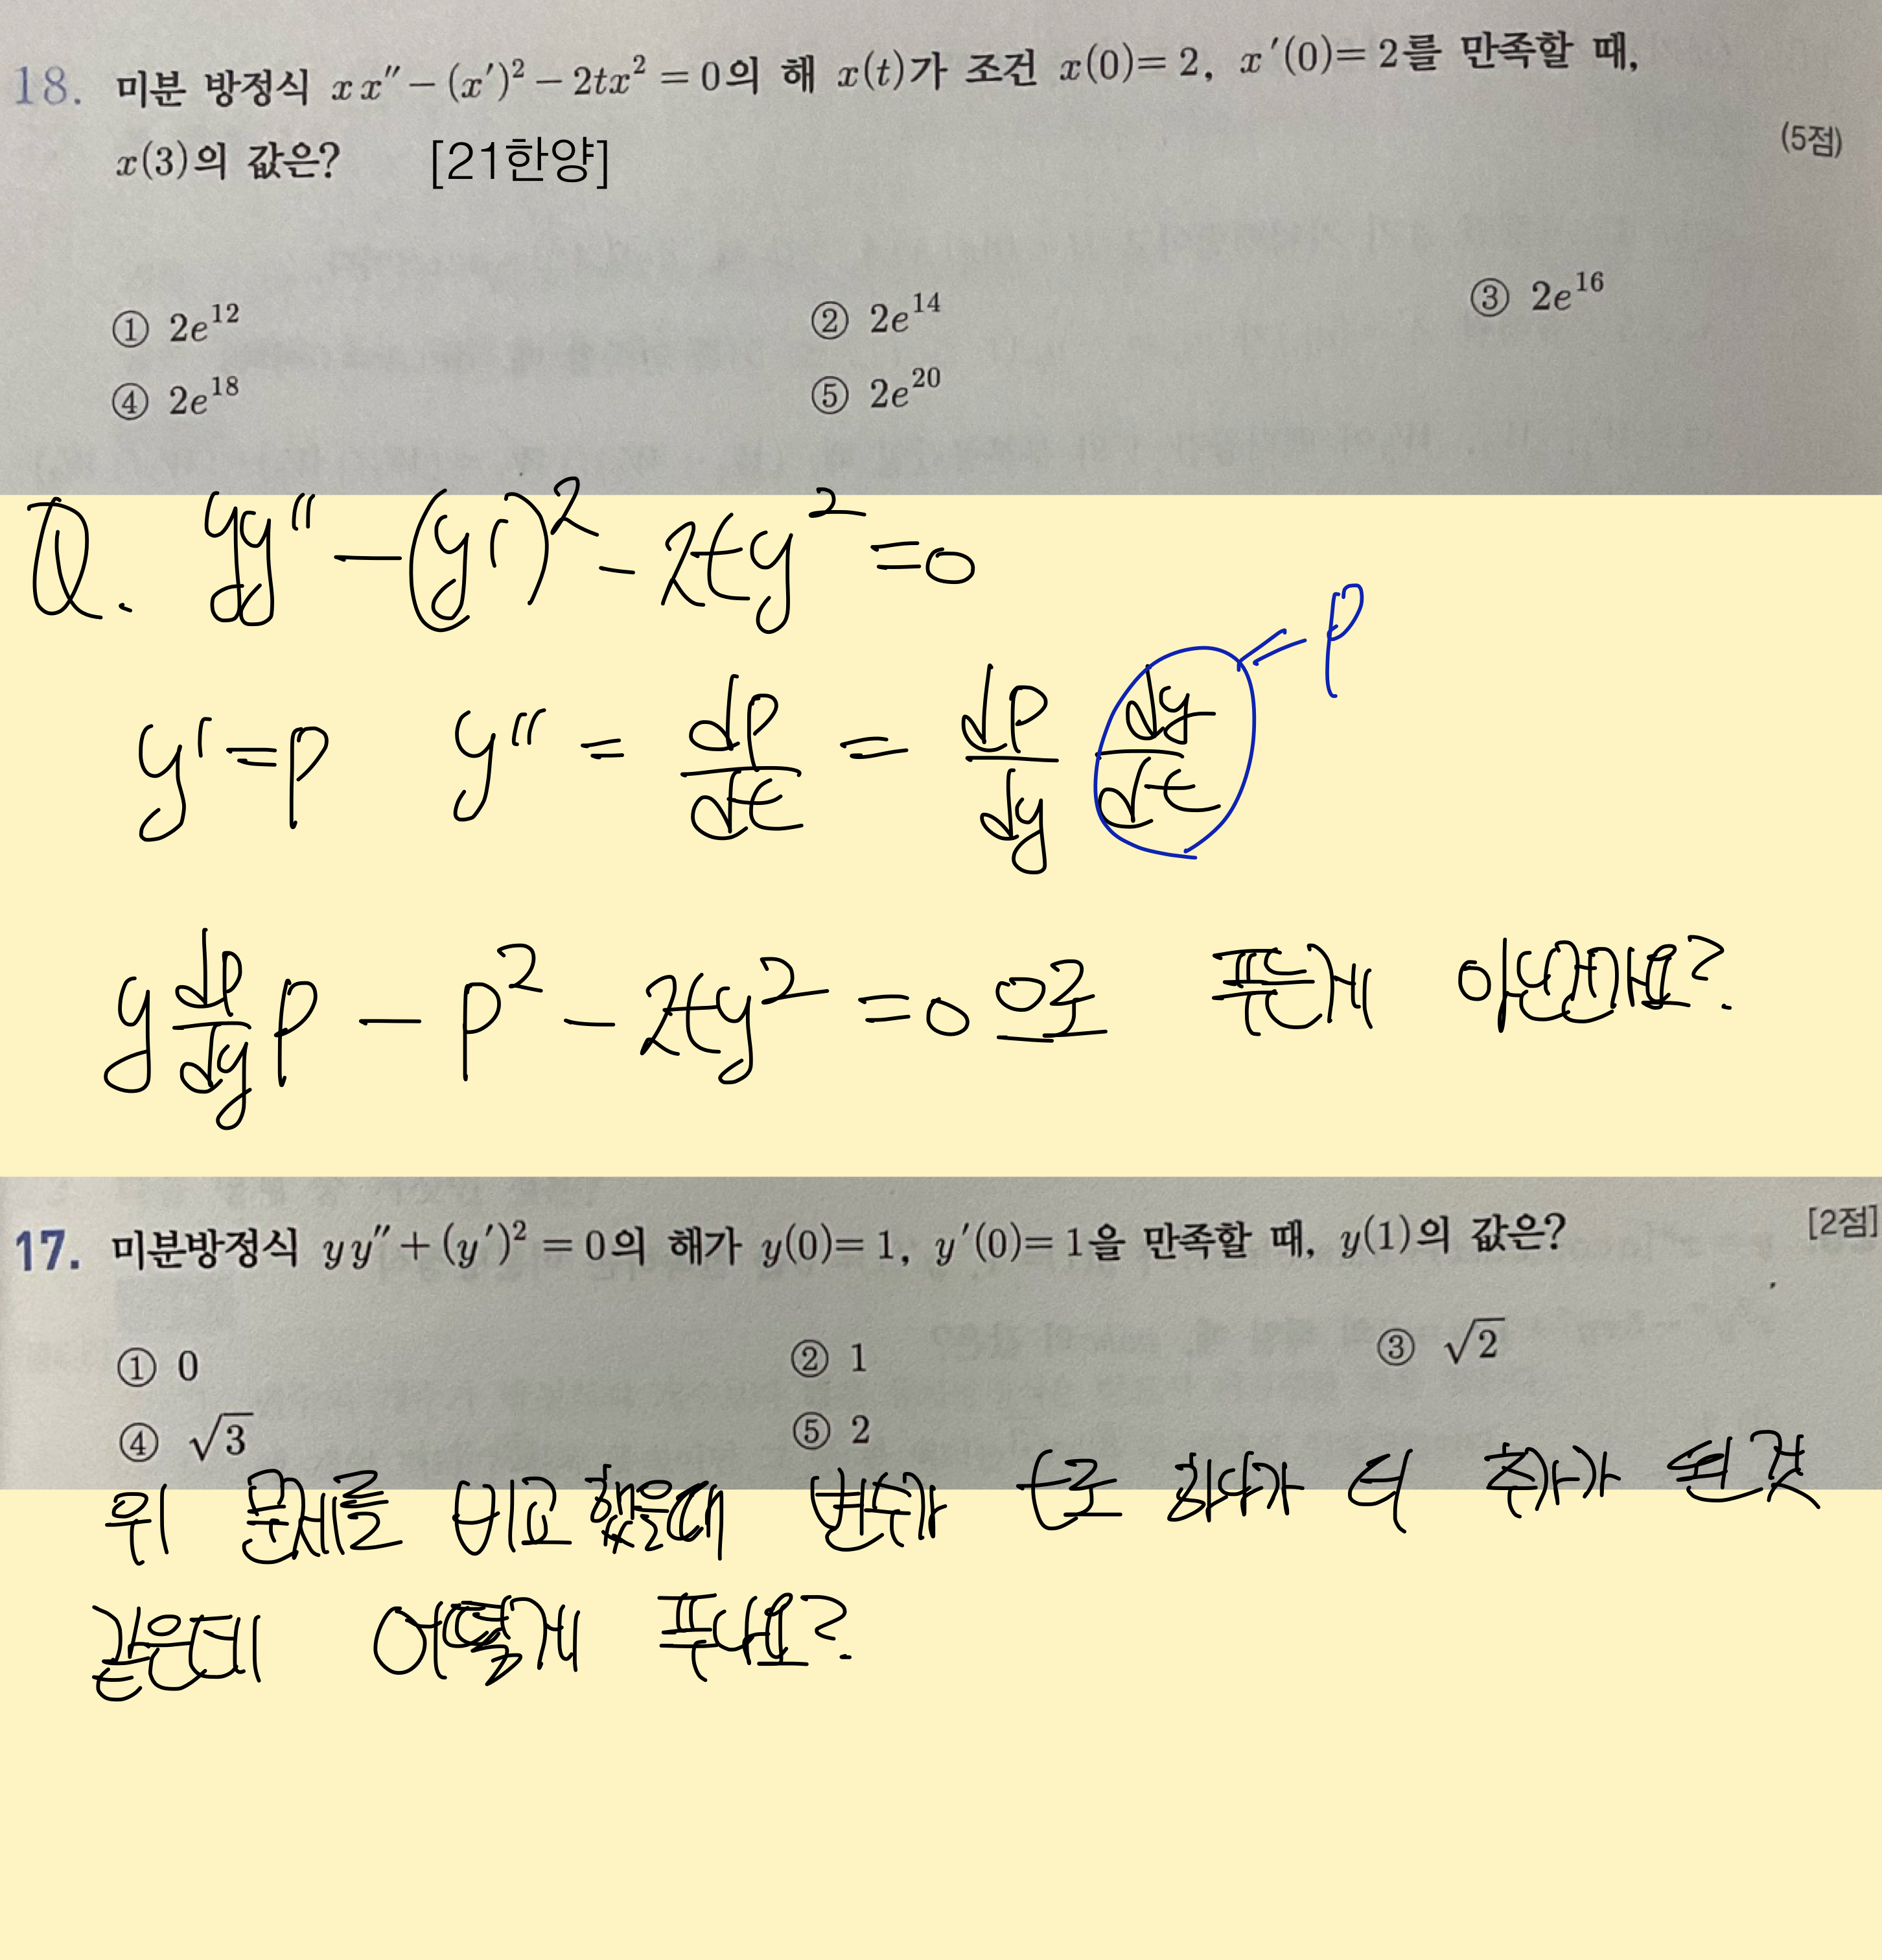 18. 미분 방정식 xx″ − (x′)² − 2tx² = 0의 해 x(t)가 조건 x(0)= 2, x′(0)= 2를 만족할 때,
x(3)의 값은? [21한양] (5점)
① 2e¹² ② 2e¹⁴ ③ 2e¹⁶
④ 2e¹⁸ ⑤ 2e²⁰
Q. yy″ − (y′)² − 2ty² = 0
y′ = p y″ = dp/dt = dp/dy dy/dt = p
y dp/dy p − p² − 2ty² = 0 으로 푸는게 아닌가요?
17. 미분방정식 yy″ + (y′)² = 0의 해가 y(0)= 1, y′(0)= 1을 만족할 때, y(1)의 값은? [2점]
① 0 ② 1 ③ √2
④ √3 ⑤ 2
위 문제를 비교했을때 변수가 t로 하나가 더 추가가 된것
같은데 어떻게 푸나요?